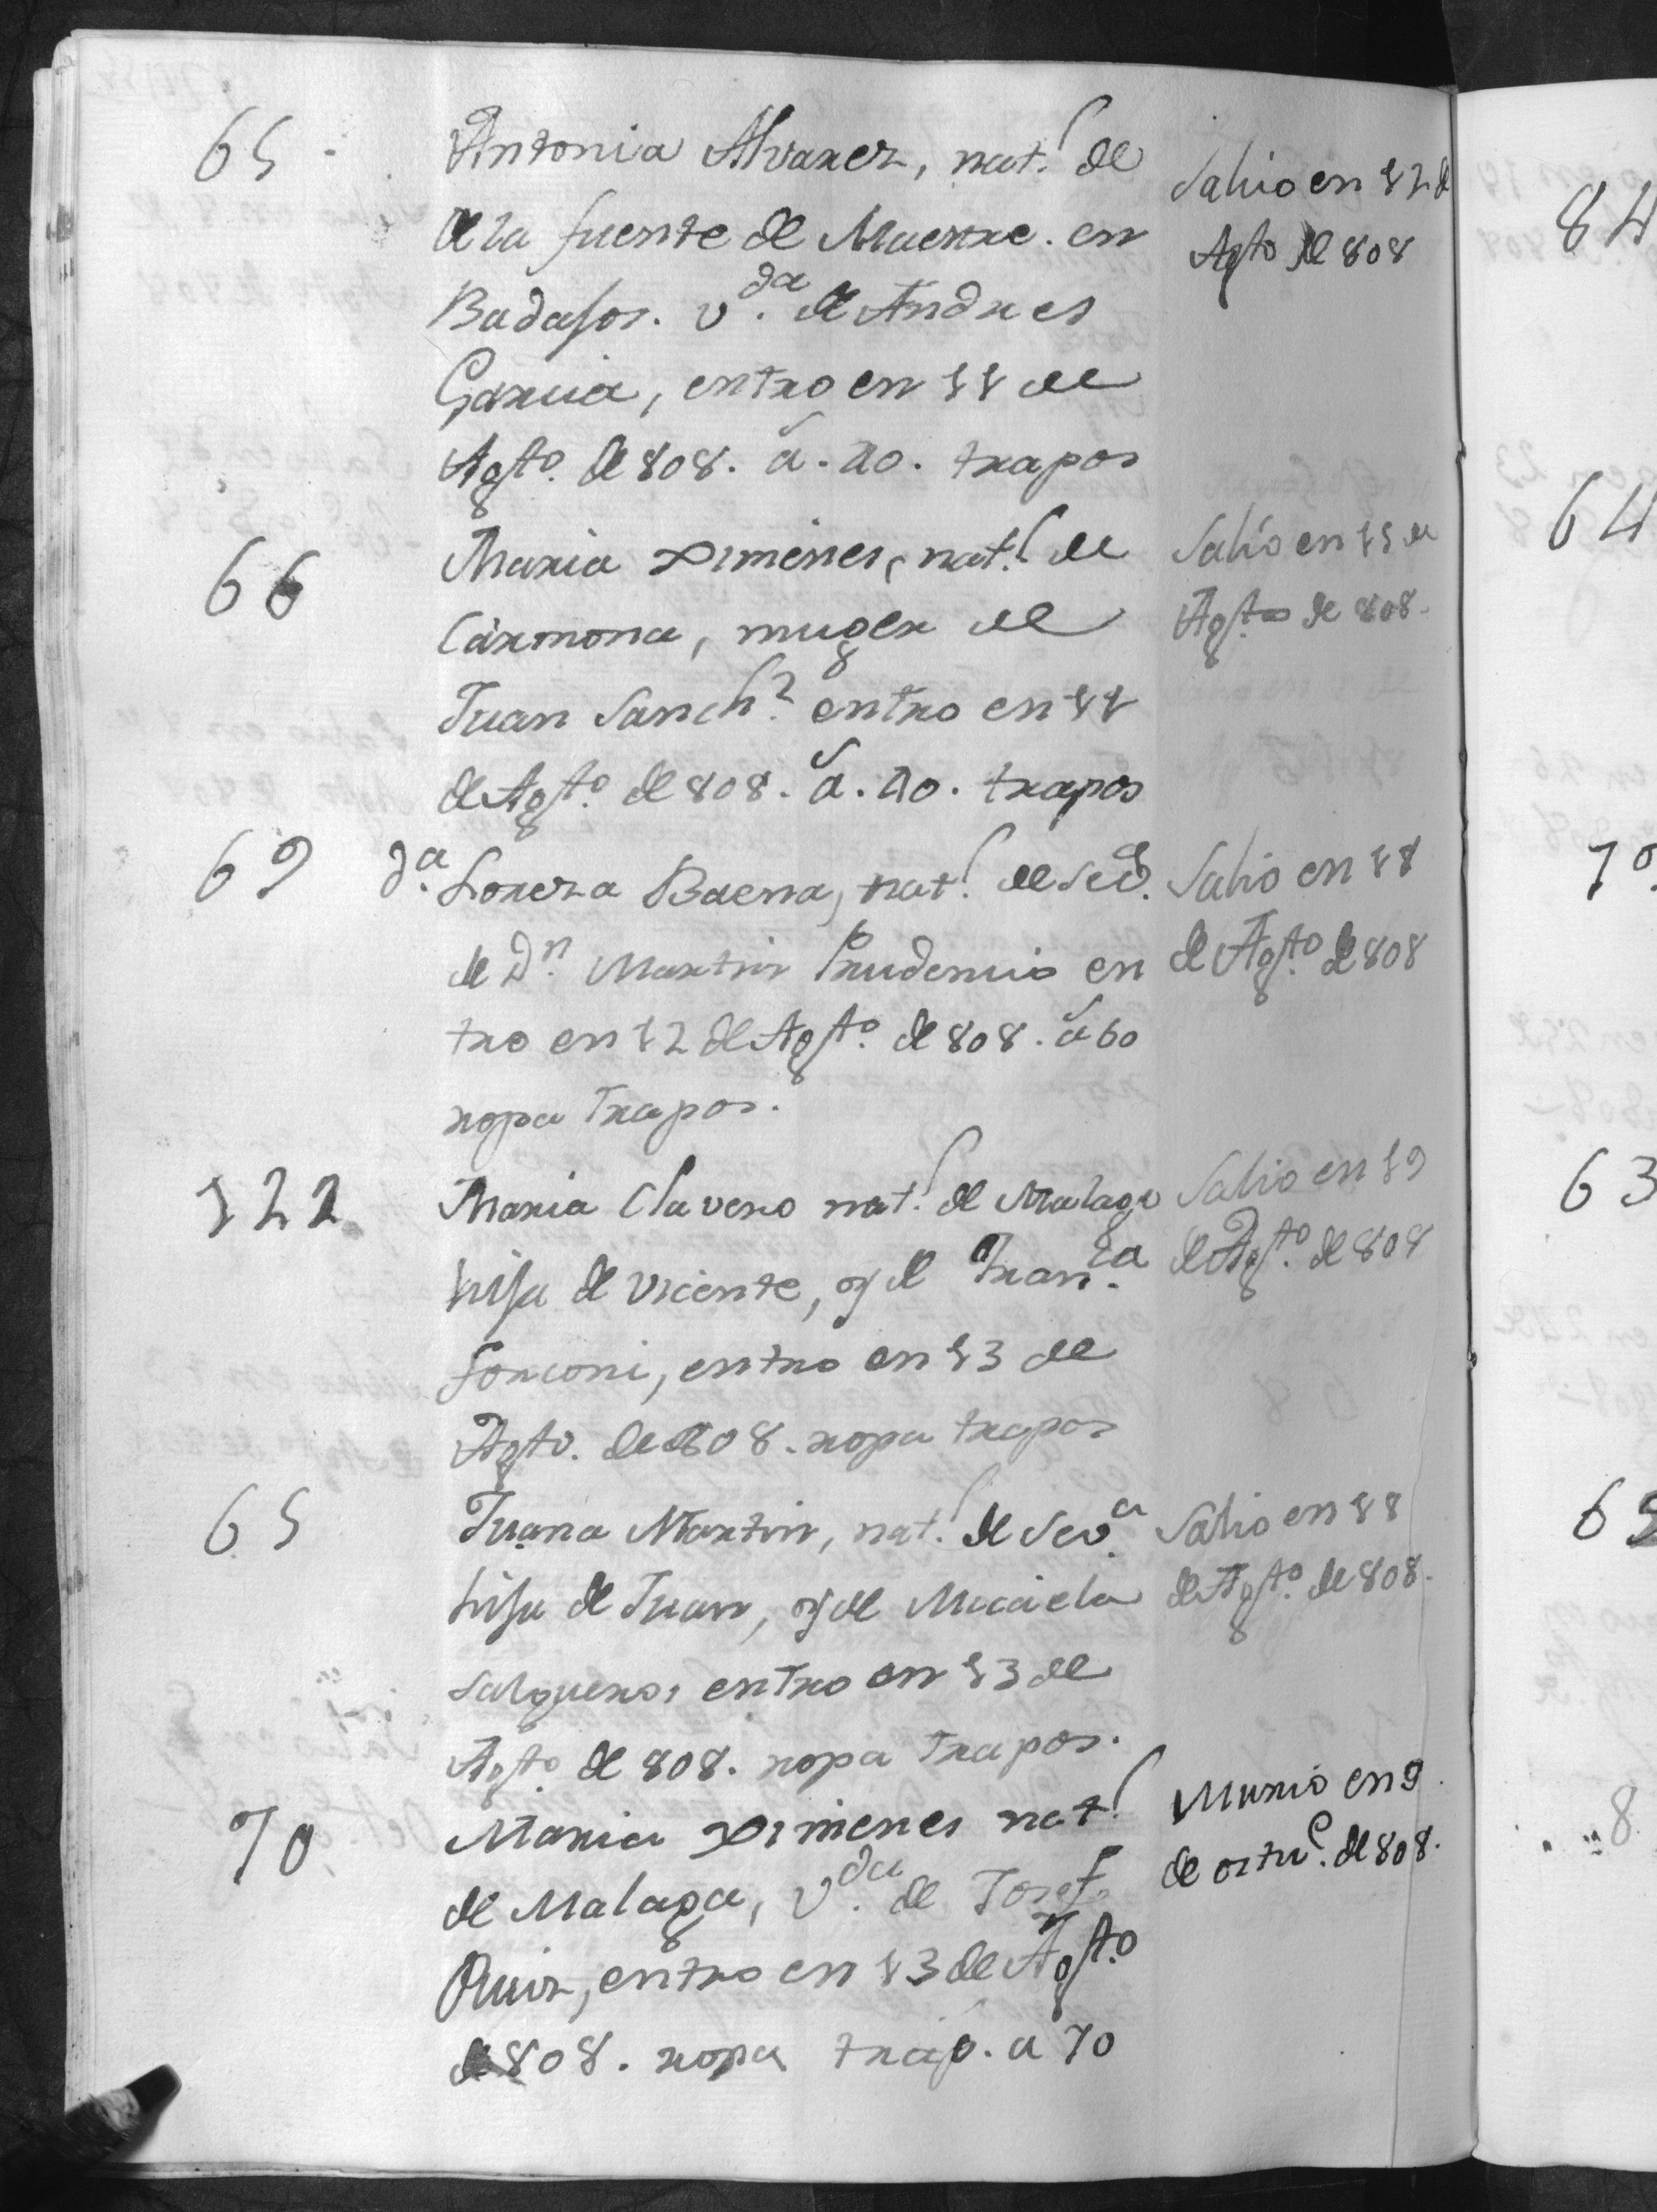 65
Antonia Alvarez, nat.l de
de la fuente de Maestre. en
Badajos. v.da de Andres
Garcia, entro en 11 de
Agto. de 808. á. ao. trapos
Salio en 12 d
Agto de 808
66
Maria Ximenes, nat.l de
Carmona, muger de
Juan Sanch.z entro en 11
de Agto. de 808. á. ao. trapos
Salio en 15 de
Agto de 808.
69
D.a Lorenza Baena, nat.l de Sev.a
de D.n Martin Prudencio en
tro en 12 de Agto. de 808. á 60
ropa trapos.
Salio en 18
de Agto. de 808
122
Maria Clavero nat.l de Malaga
hija de Vicente, y de Fran.ca
forconi, entro en 13 de
Agto. de 808. ropa trapos
Salio en 19
de Agto. de 808
65
Juana Martin, nat.l de Sev.a
hija de Juan, y de Micaela
Salguero, entro en 13 de
Agto. de 808. ropa trapos.
Salio en 18
de Agto. de 808.
70
Maria Ximenes nat.l
de Malaga, v.da de Josef
Ruiz, entro en 13 de Agto.
de 808. ropa trap. a 70
Murio en 9
de octu.e de 808.
84
64
70
63
8